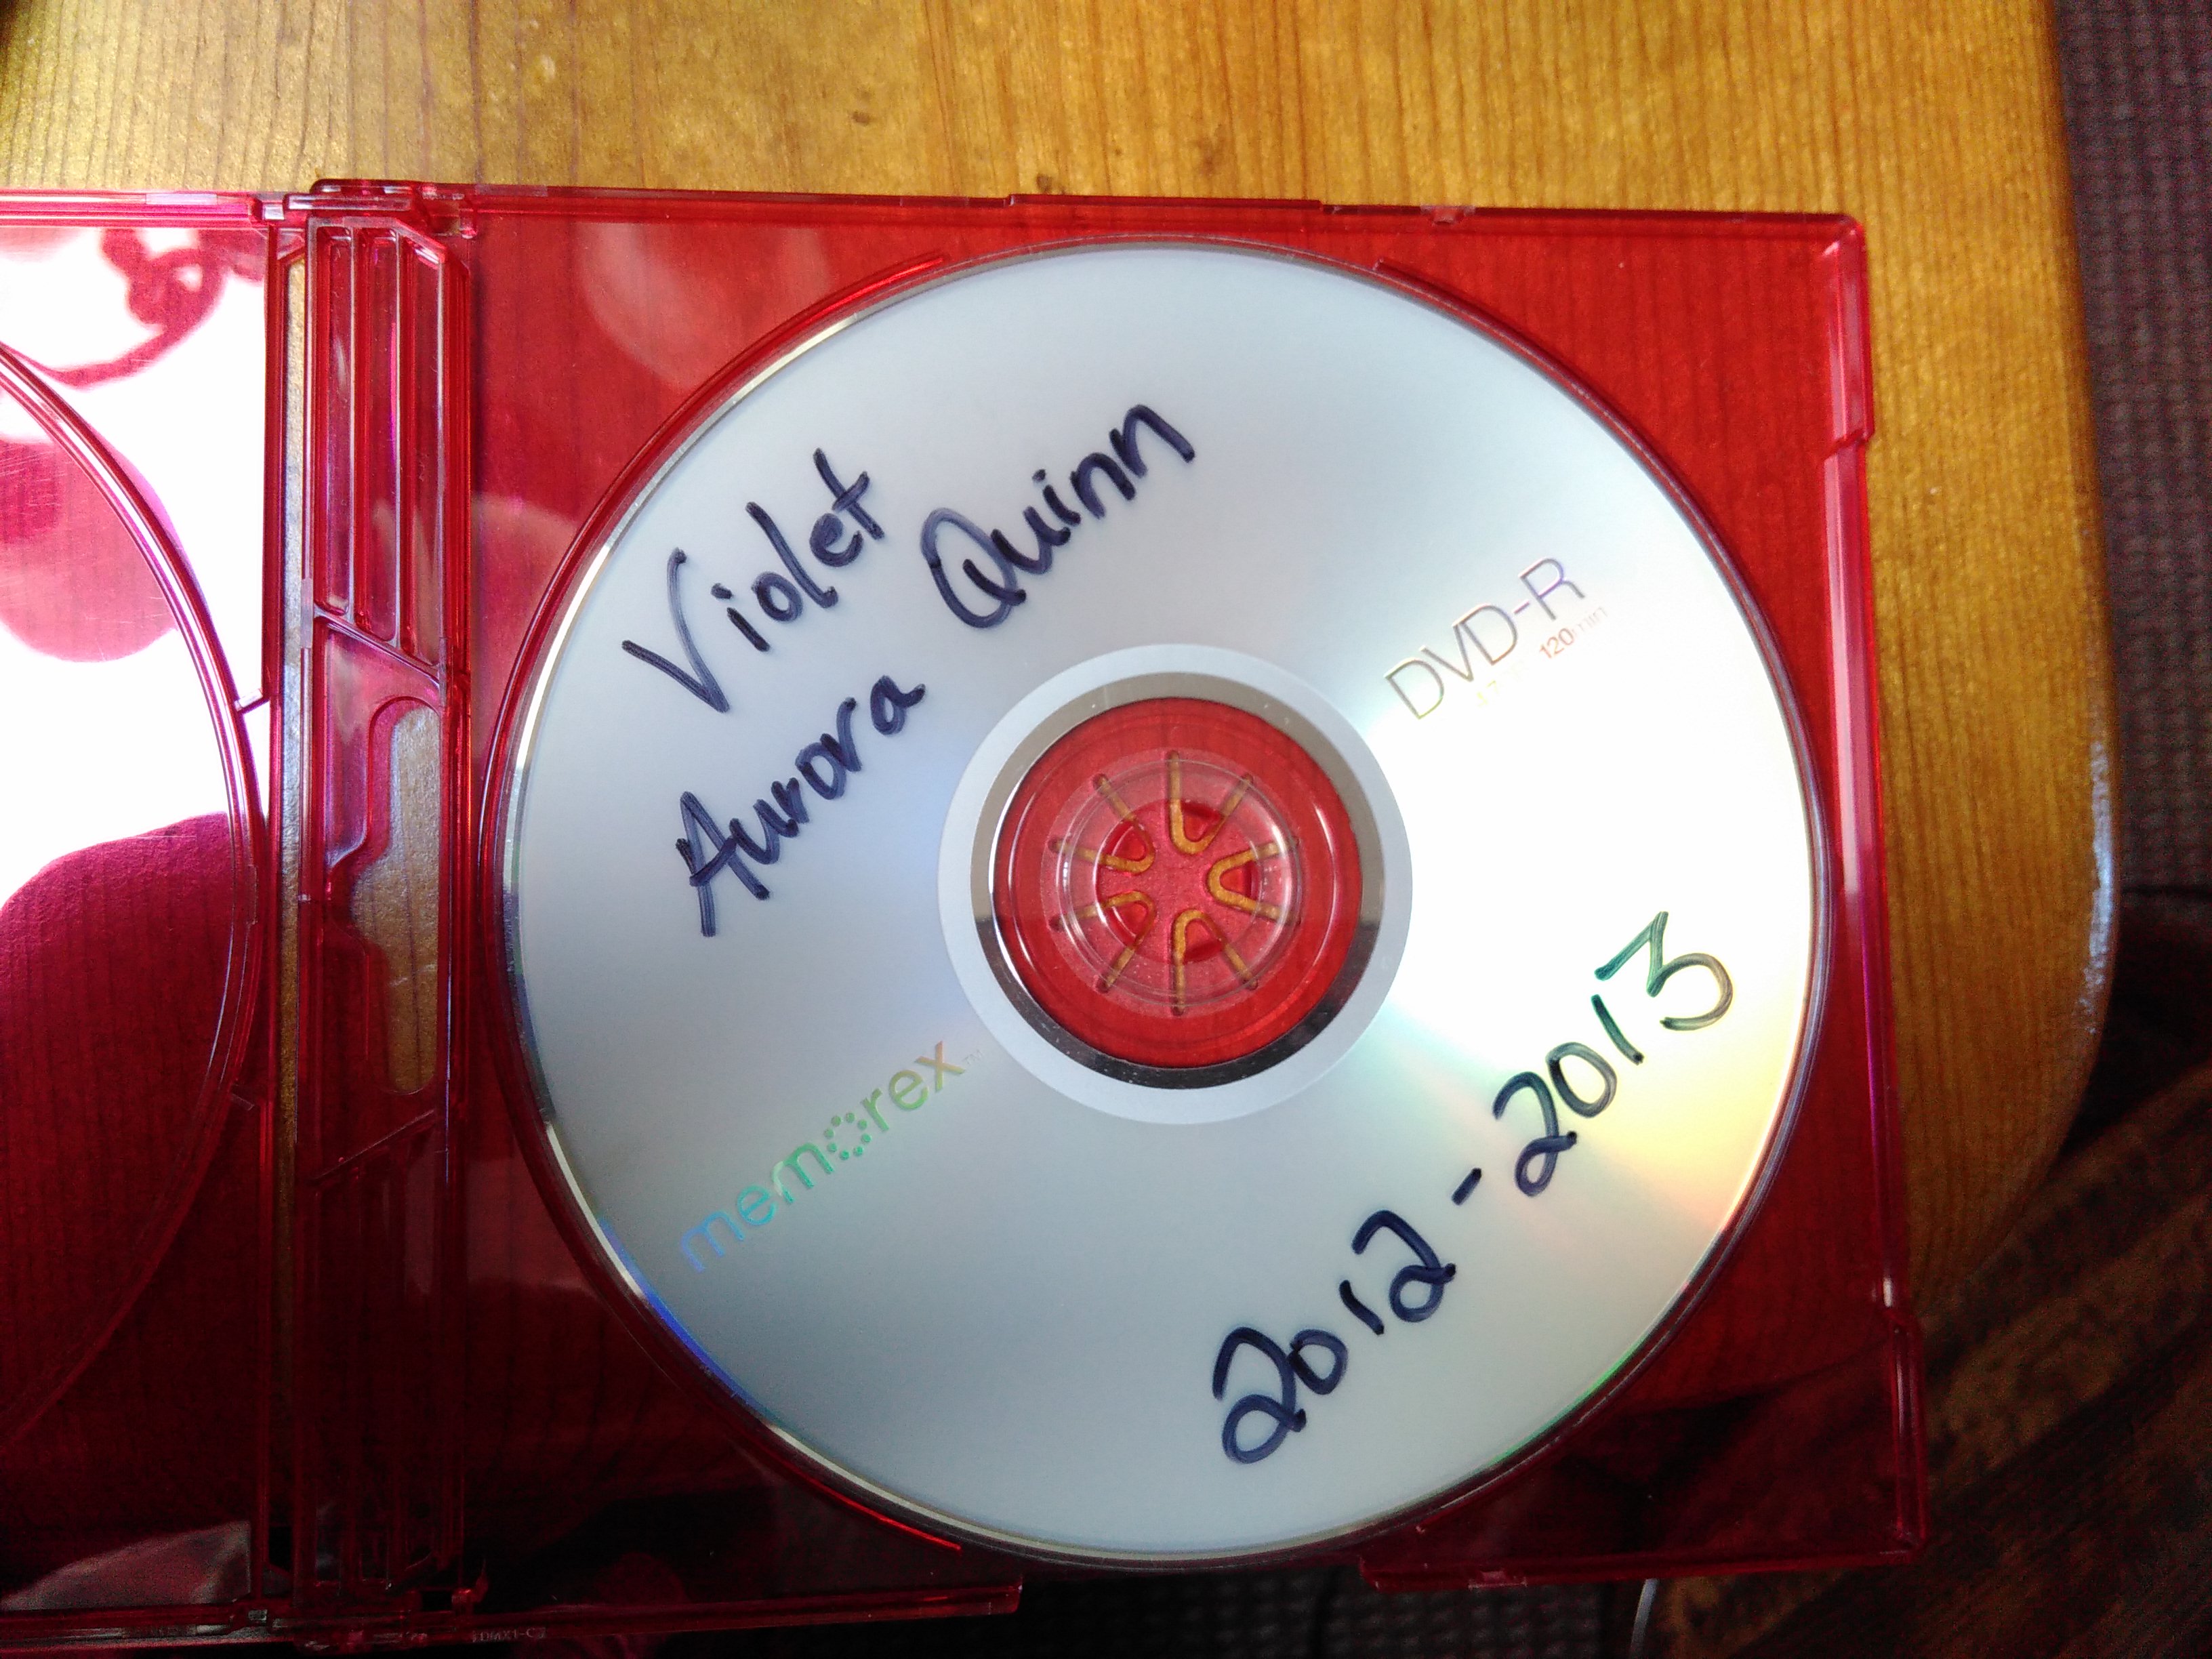 Violet
Aurora Quinn
DVD-R
120min
memorex™
2012-2013